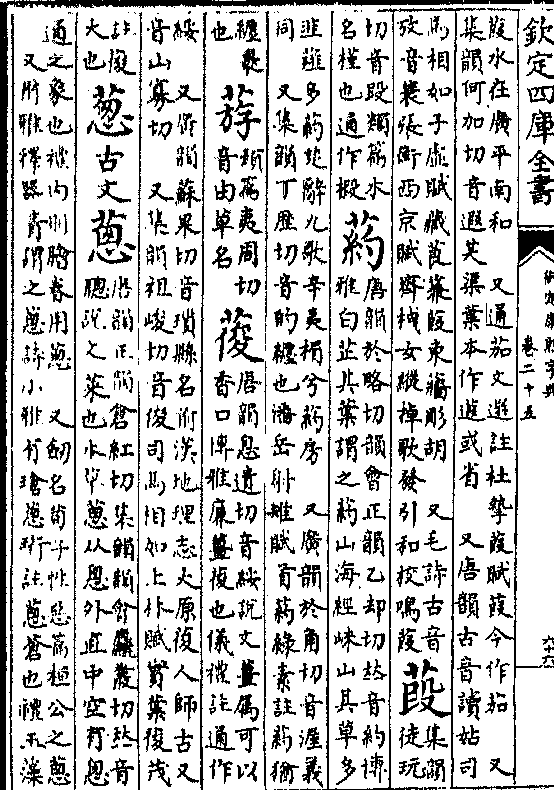 欽定四庫全書
御定康熙字典
卷二十五
葭水在廣平南和　又通茄文選註杜摯葭賦葭今作茄　又
集韻何加切音遐芙蕖葉本作蕸或省　又唐韻古音讀姑司
馬相如子虛賦藏莨蒹葭東蘠彫胡　又毛詩古音
攷音裘張衡西京賦齊栧女縱櫂歌發引和校鳴葭
葮
集韻
徒玩
切音段類篇木
名槿也通作椴
葯
唐韻於略切韻會正韻乙却切𠀤音約博
雅白芷其葉謂之葯山海經崍山其草多
韭薤多葯楚辭九歌辛夷楣兮葯房　又廣韻於角切音渥義
同　又集韻丁歷切音的纏也潘岳射雉賦首葯綠素註葯猶
纏裹
也
類篇夷周切
音由草名
葰
唐韻息遺切音綏說文薑屬可以
香口博雅廉薑葰也儀禮註通作
綏　又唐韻蘇果切音瑣縣名前漢地理志太原葰人師古又
音山寡切　又集韻祖峻切音俊司馬相如上林賦實葉葰茂
註葰
大也
葱
古文
蔥
唐韻正韻倉紅切集韻韻會麤叢切𠀤音
聰說文菜也本草蔥从悤外直中空有悤
通之象也禮內則膾春用蔥　又劍名荀子性惡篇桓公之蔥
又爾雅釋器靑謂之蔥詩小雅有瑲蔥珩註蔥蒼也禮玉藻